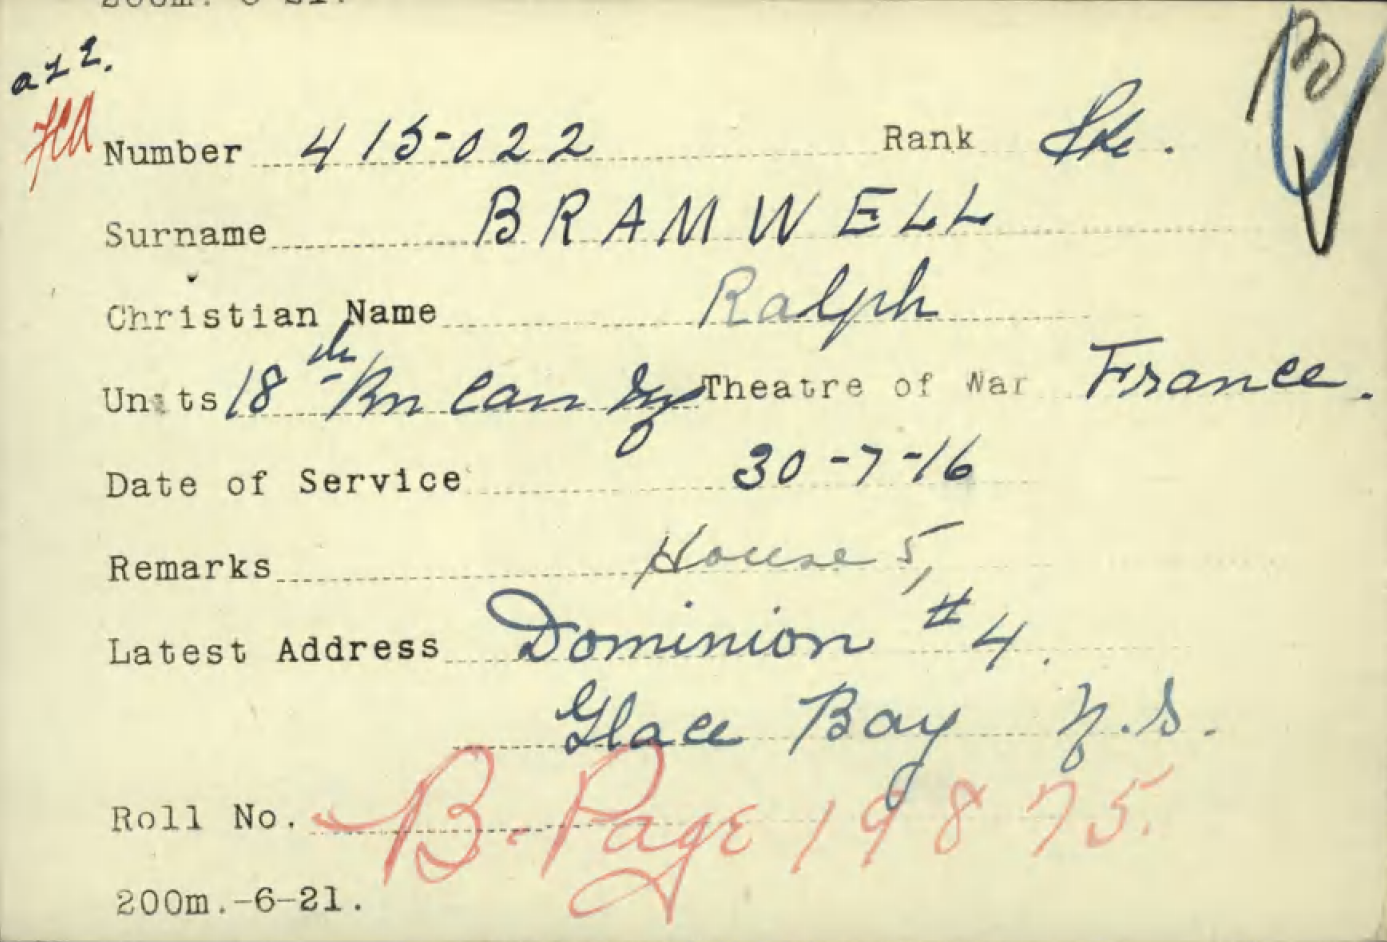 200m.-6-21.
Number 415-022 Rank Pte.
Surname BRAMWELL
Christian Name Ralph
Units 18th Bn Can Theatre of War France.
Date of Service 30-7-16
Remarks House 5,
Latest Address Dominion #4.
Glace Bay N.S.
Roll No. B-Page 19875.
200m.-6-21.